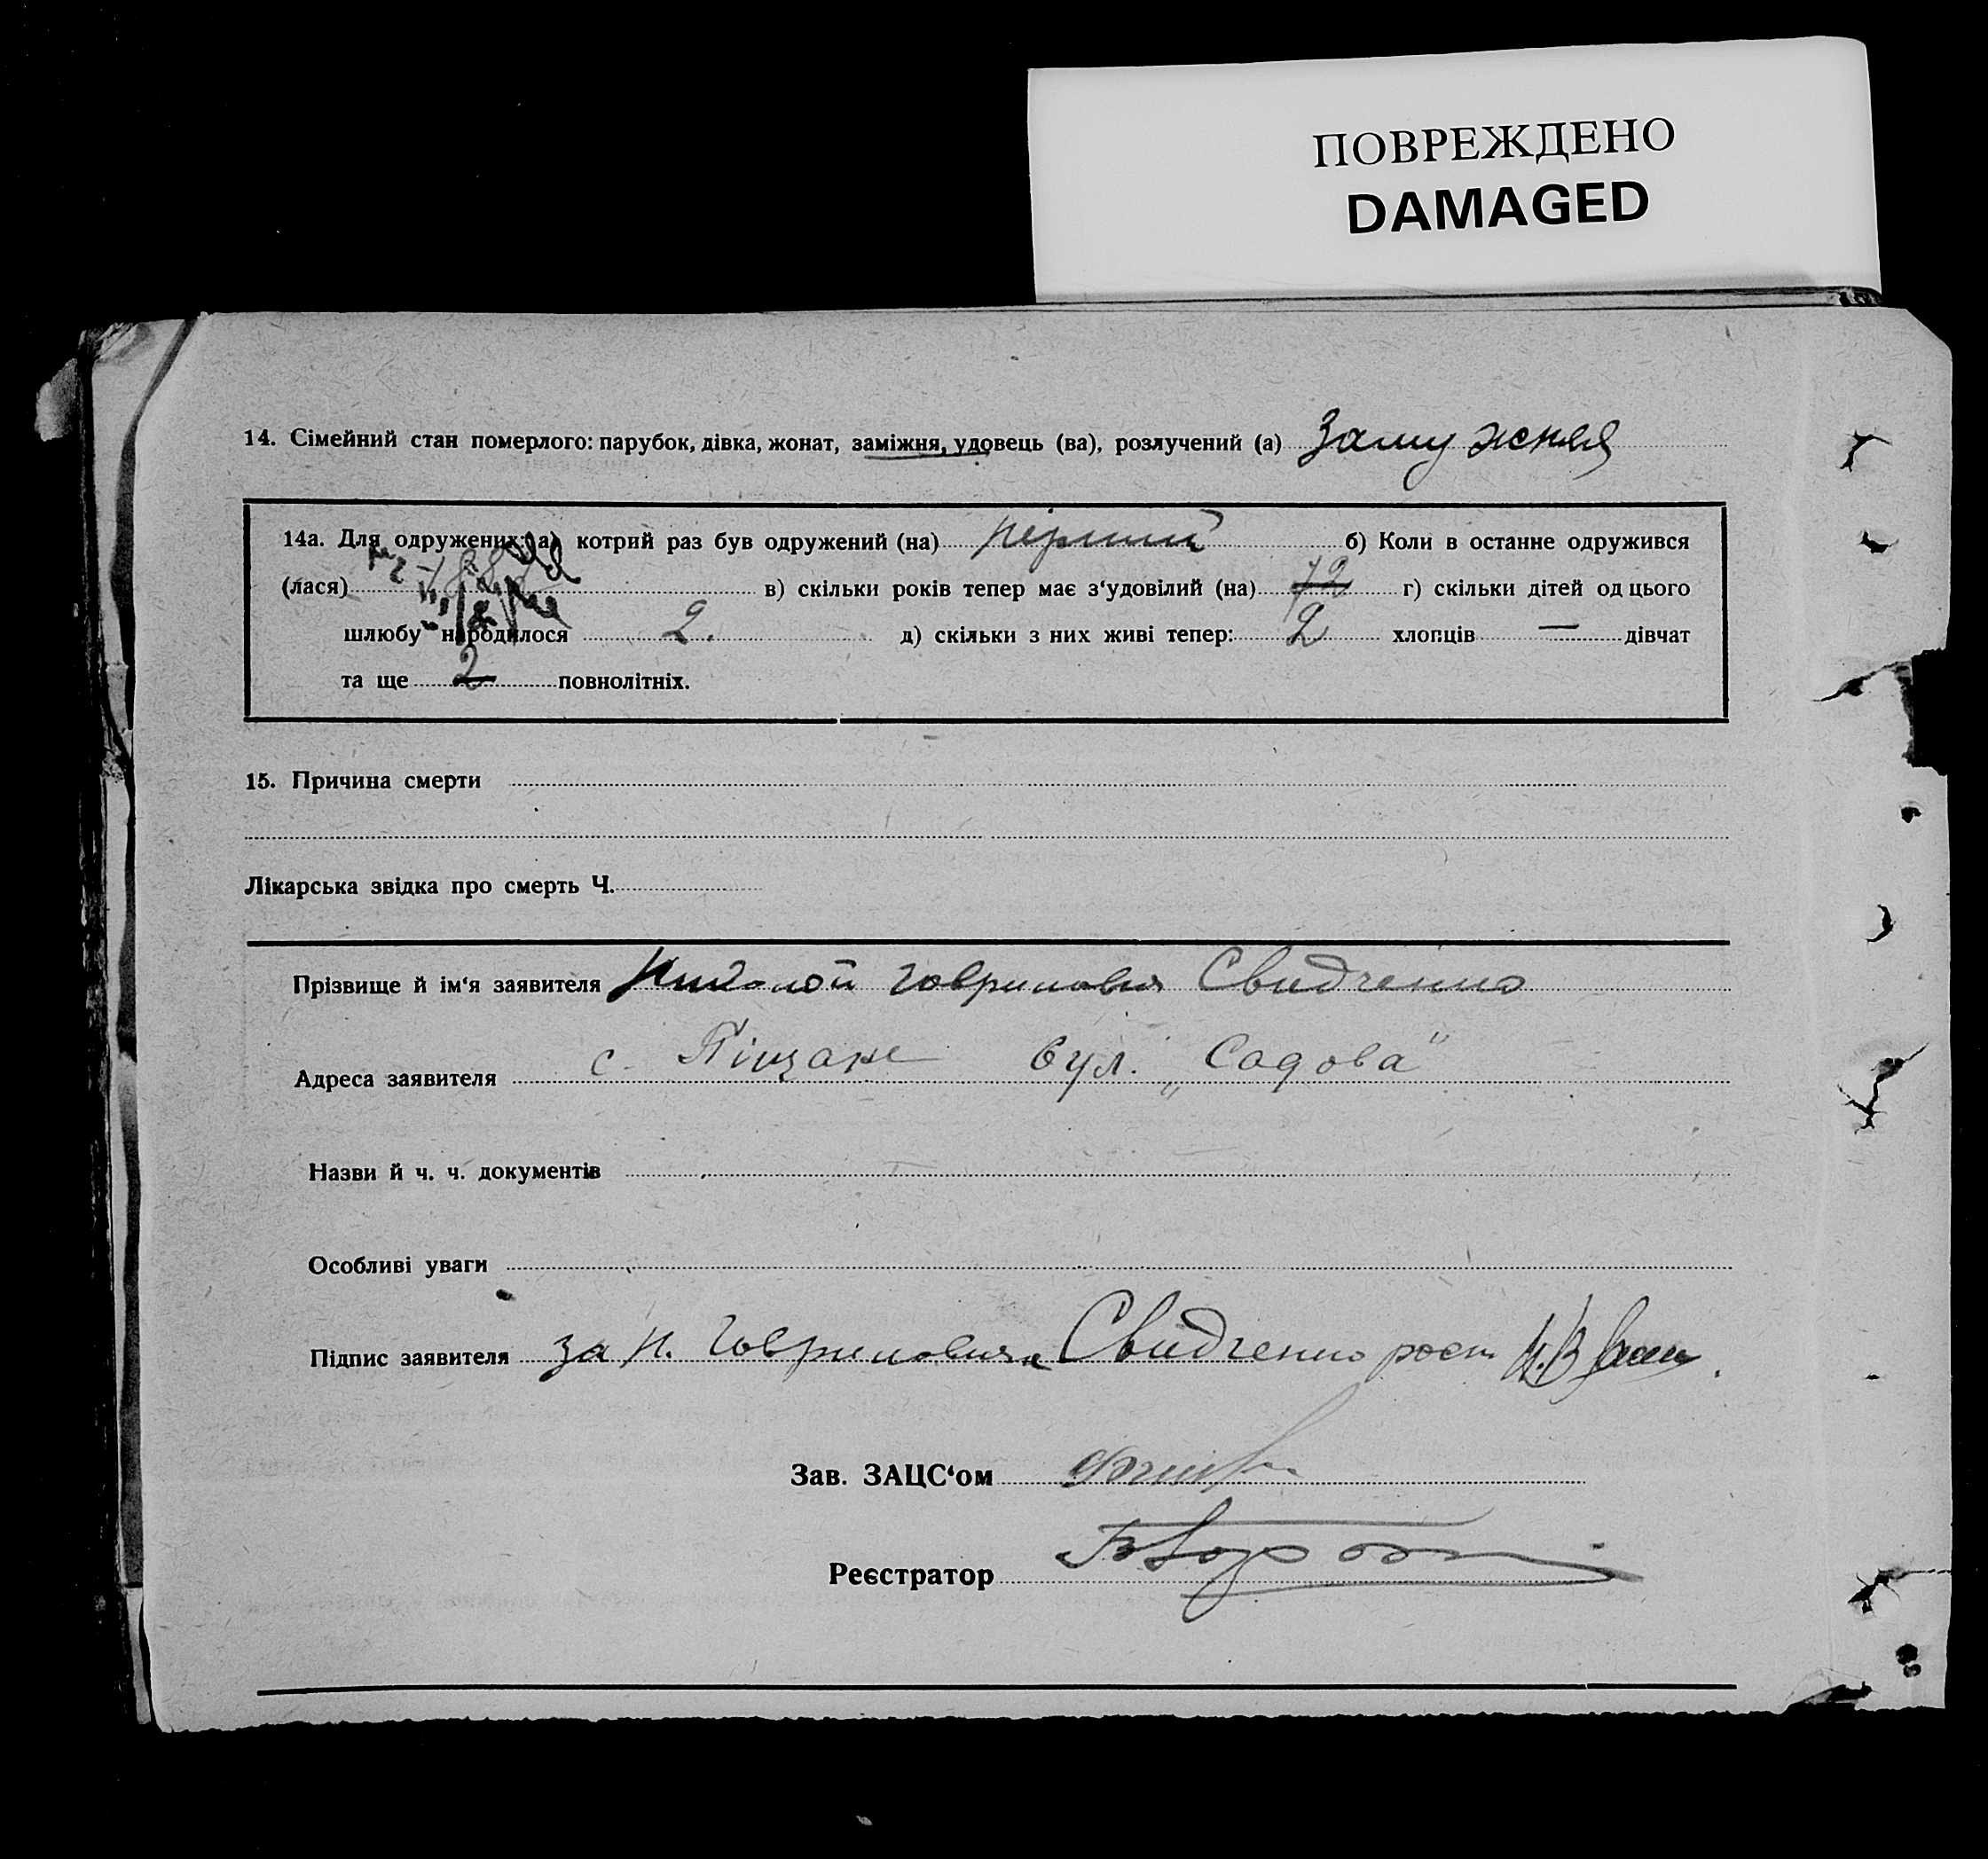 ПОВРЕЖДЕНО
DAMAGED
14. Сімейний стан померлого: парубок, дівка, жонат, заміжня, удовець (ва), розлучений (а) замужняя
14а. Для одружених: а) котрий раз був одружений (на) перший б) Коли в останне одружився
(лася) в) скільки років тепер має з‘удовілий (на) 72 г) скільки дітей од цього
шлюбу народилося 2. д) скільки з них живі тепер: 2 хлопців — дівчат
та ще 2 повнолітніх.
15. Причина смерти
Лікарська звідка про смерть Ч.
Прізвище й ім‘я заявителя Свидченко
Адреса заявителя с. Піщане вул. „Садова“
Назви й ч. ч. документів
Особливі уваги
Підпис заявителя за Н. Свидченко
Зав. ЗАЦС‘ом
Реєстратор